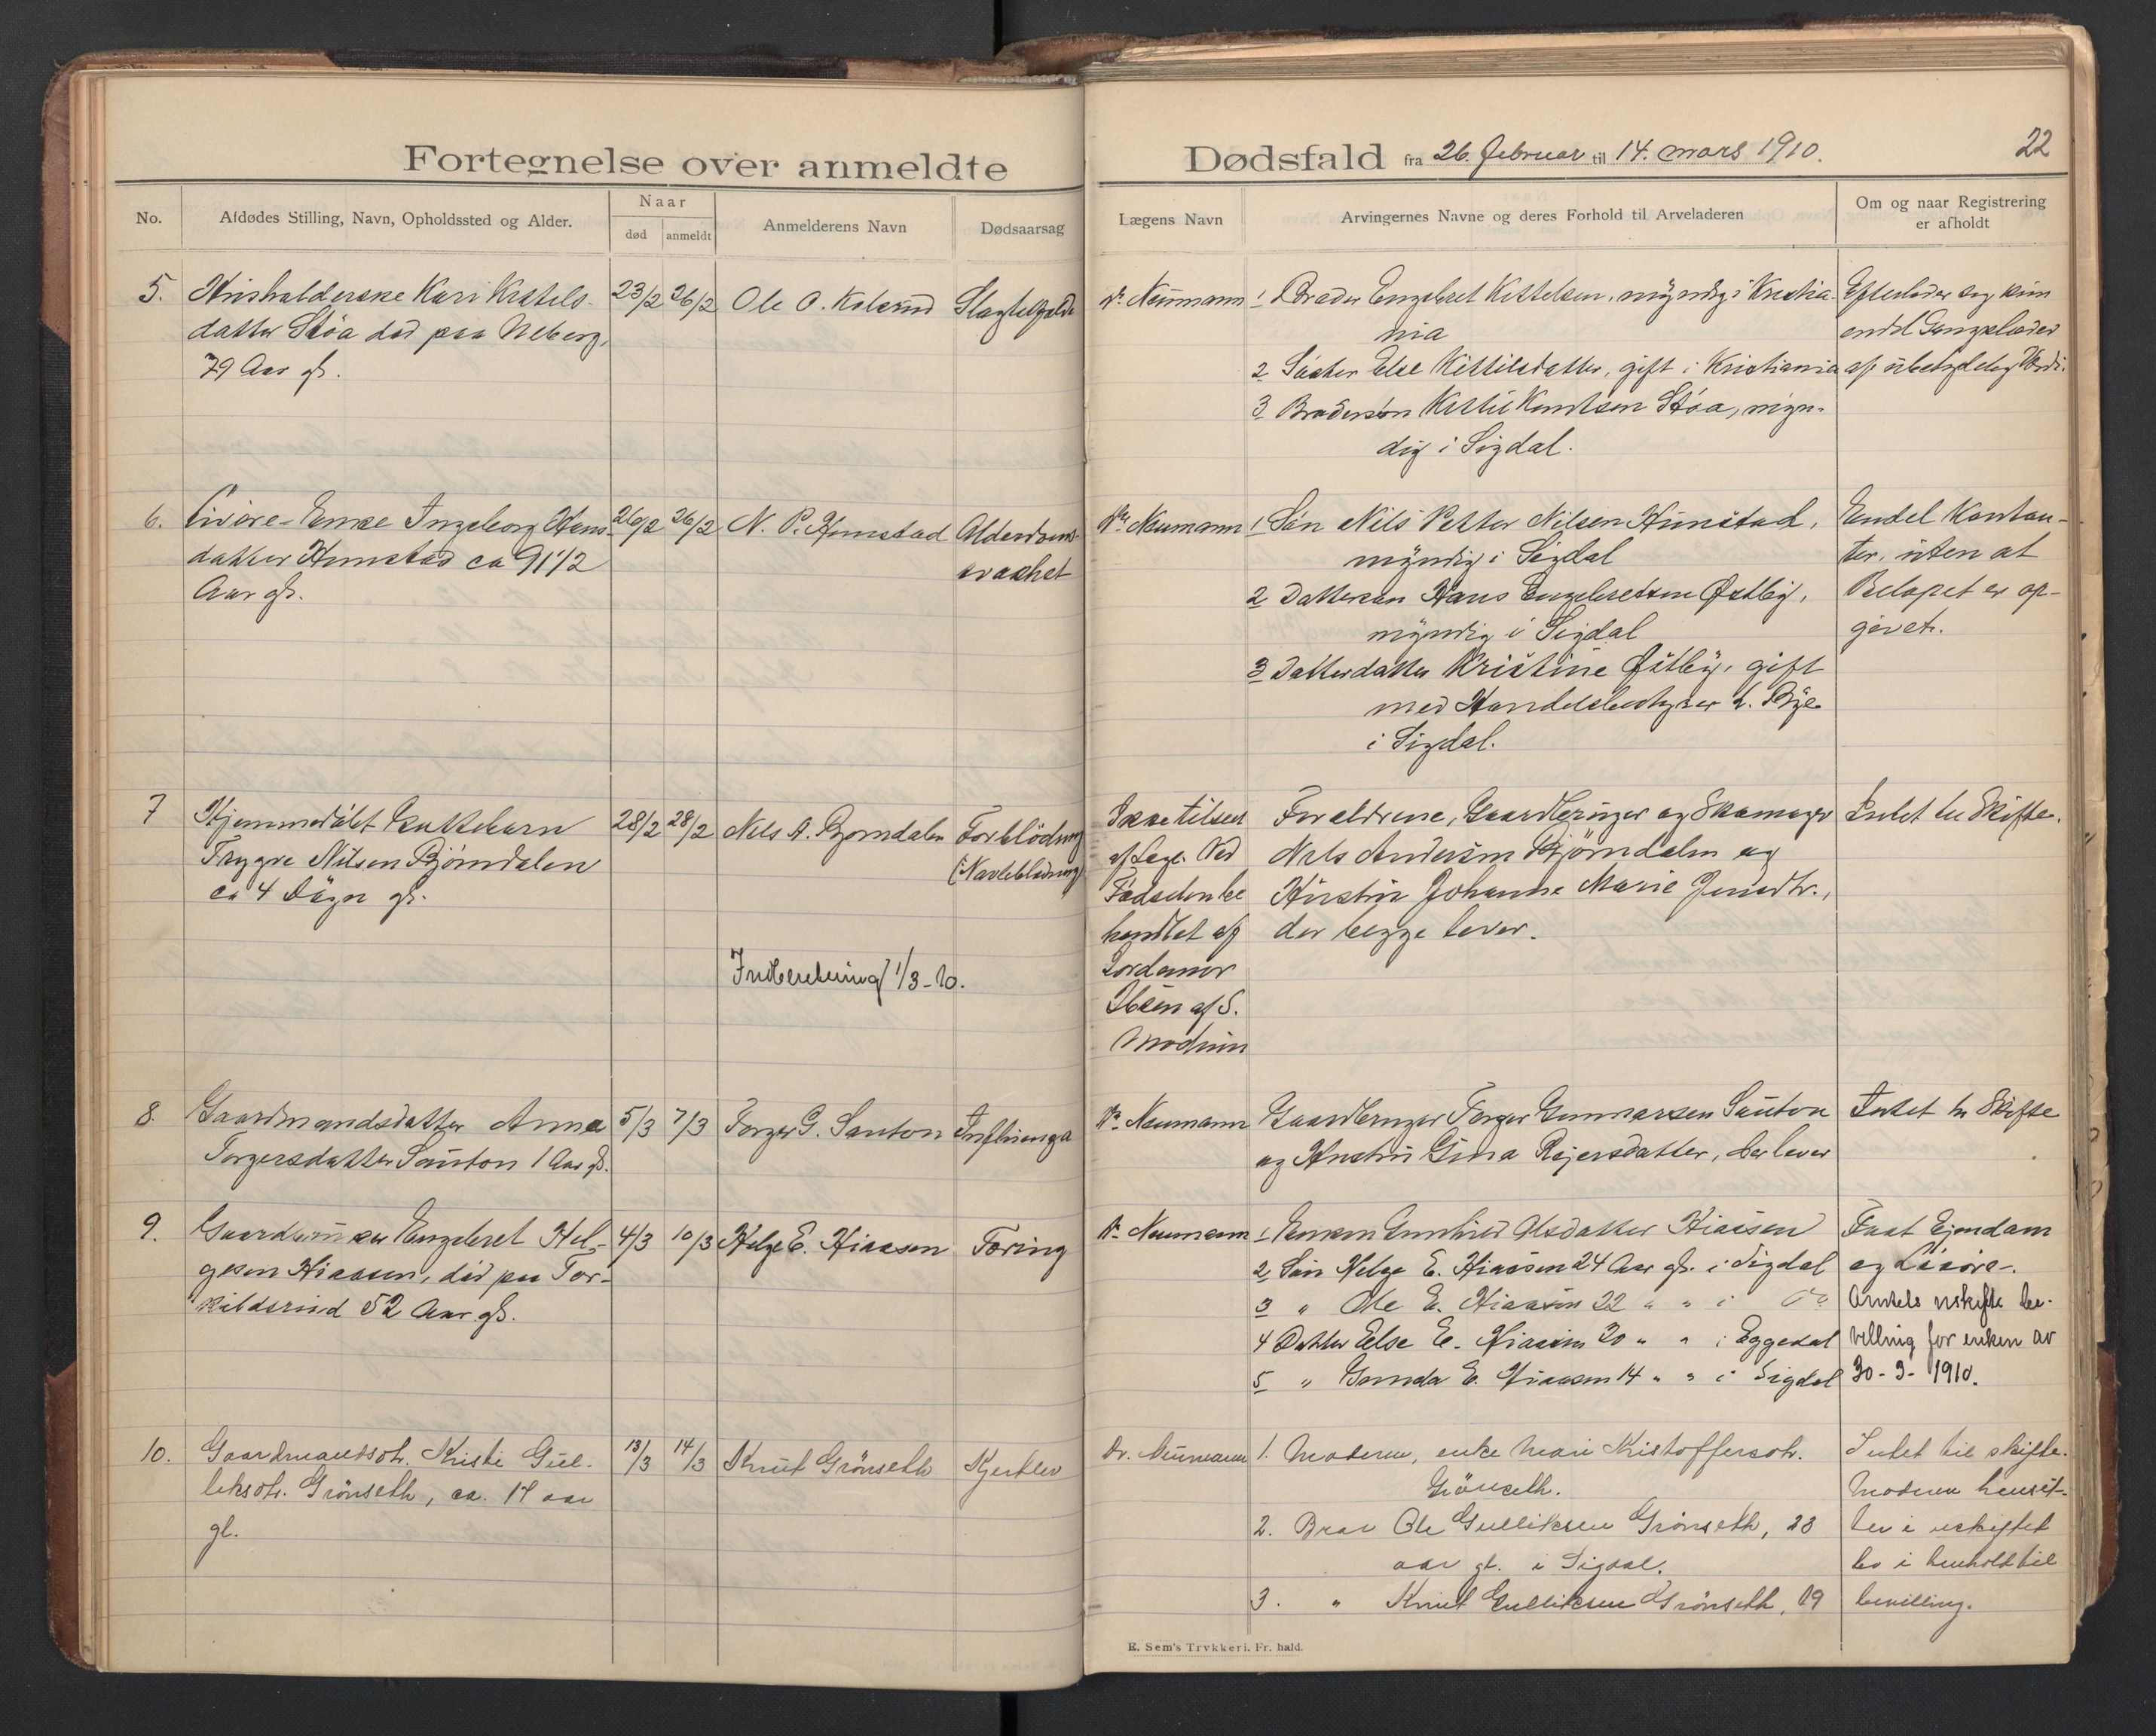 Fortegnelse over anmeldte
Dødsfald fra 26. Februar til 14. mars 1910.
22
No.
Afdødes Stilling, Navn, Opholdssted og Alder.
Naar
død
anmeldt
Anmelderens Navn
Dødsaarsag
Lægens Navn
Arvingernes Navne og deres Forhold til Arveladeren
Om og naar Registrering
er afholdt
5.
Husholderske Kari Kittels-
datter Støa død paa Neberg,
79 Aar gl.
23/2
26/2
Ole O. Kolsrud
Slagtilfælde
Dr. Neumann
1 Broder Engebret Kittelsen, myndig i Kristia-
nia
2 Søster Else Kittilsdatter, gift i Kristiania
3 Brodersøn Kittil Knutsen Støa, myn-
dig i Sigdal.
Efterlader sig kun
endel Gangklæder
af ubetydelig Værdi.
6.
Livøre-Enke Ingeborg Hans-
datter Hunstad ca 91 1/2
Aar gl.
26/2
26/2
N. P. Hunstad
Alderdoms-
svakhet
Dr. Neumann
1 Søn Nils Petter Nilsen Hunstad,
myndig i Sigdal
2 Dattersøn Hans Engebretsen Østby,
myndig i Sigdal
3 Datterdatter Kristine Østby, gift
med Handelsbestyrer L. Bye
i Sigdal.
Endel Kontan-
ter, uten at
Beløpet er op-
givet.
7
Hjemmedøbt Guttebarn
Trygve Nilsen Bjørndalen
ca 4 Døgn gl.
28/2
28/2
Nils A. Bjørndalen
Forblødning
(Navleblødning)
Indberetning 1/3-10.
Ikke tilseet
af Læge. Ved
Fødselen be
handlet af
Jordemor
Ibsen af S.
Modum
Forældrene, Gaardbruger og Skomager
Nils Andersen Bjørndalen og
Hustru Johanne Marie Jensdtr.,
der begge lever.
Intet til Skifte.
8
Gaardmandsdatter Anna
Torgersdatter Sauton 1 Aar gl.
5/3
7/3
Torger G. Sauton
Influenza
Dr. Neumann
Gaardbruger Torger Gunnarsen Sauton
og Hustru Gina Reiersdatter, der lever
Intet til Skifte
9.
Gaardbruker Engebret Hel-
gesen Hiaasen, død paa Tor-
kildsrud 52 Aar gl.
4/3
10/3
Helge E. Hiaasen
Tæring
Dr. Neumann
1 Enken Gunhild Olsdatter Hiaasen
2 Søn Helge E. Hiaasen 24 Aar gl. i Sigdal
3 " Ole E. Hiaasen 22 " " i do
4 Datter Else E. Hiaasen 20 " " i Eggedal
5 " Gunda E. Hiaasen 14 " " i Sigdal
Fast Ejendom
og Løsøre.
Amtets uskifte be-
villing for enken av
30-3-1910.
10.
Gaardmandsdtr. Kristi Gul-
liksdtr. Grönseth, ca. 17 aar
gl.
13/3
14/3
Knut Grönseth
Kjertler
Dr. Neumann
1. Moderen, enke Mari Kristoffersdtr.
Grönseth.
2. Bror Ole Gulliksen Grönseth, 23
aar gl. i Sigdal.
3. " Knut Gulliksen Grönseth, 19
Intet til skifte.
Moderen hensit-
ter i uskiftet
bo i henhold til
bevilling.
E. Sem's Trykkeri, Fr. hald.